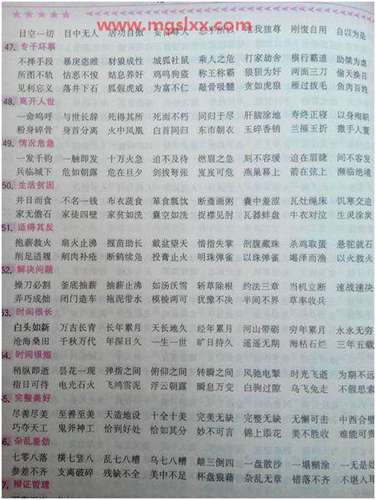 www.mgslxx.com
目空一切 目中无人
唯我独尊 刚愎自用 自以为是
47. 专干坏事
不择手段 暴戾恣睢 豺狼成性 城狐社鼠 乘人之危 打家劫舍 横行霸道
所图不轨 怙恶不悛 姑息养奸 鸡鸣狗盗 称王称霸 狼狈为奸 两面三刀 偷天换日
见利忘义 落井下石 狐假虎威 为富不仁 敲骨吸髓 贪如虎狼 雁过拔毛
48. 离开人世
一命呜呼 与世长辞 死得其所 死而不朽 同归于尽 肝脑涂地 寿终正寝 以身殉职
粉身碎骨 身首分离 火中凤凰 白首同归 东市朝衣 玉碎香销 兰摧玉折
49. 情况危急
一发千钧 一触即发 十万火急 迫不及待 燃眉之急 刻不容缓 迫在眉睫 间不容发
兵临城下 危如朝露 危在旦夕 剑拔弩张 岌岌可危 箭在弦上 濒临绝境
50. 生活贫困
并日而食 不名一钱 布衣蔬食 箪食瓢饮 断齑画粥 囊中羞涩 瓦灶绳床 饥寒交迫
家无儋石 家徒四壁 家贫如洗 一贫如洗 捉襟见肘 瓦器蚌盘 牛衣对泣 生灵涂炭
51. 适得其反
抱薪救火 扇火止沸 揠苗助长 戴盆望天 惜指失掌 剖腹藏珠 杀鸡取蛋 悬驼就石
削足适履 剜肉补疮 断鹤续凫 投膏止火 明珠弹雀 饮鸩止渴 竭泽而渔 以火救火
52. 解决问题
操刀必割 釜底抽薪 抽薪止沸 如汤沃雪 斩草除根 约法三章 当机立断 速战速决
弄巧成拙 闭门造车 拖泥带水 模棱两可 犹豫不决 半间不界 草率收兵
53. 时间很长
白头如新 万古长青 长年累月 天长地久 经年累月 河山带砺 穷年累月 永永无穷
沧海桑田 千秋万代 年深日久 一生一世 旷日持久 遥遥无期 海枯石烂 三年五载
54. 时间很短
稍纵即逝 昙花一现 弹指之间 俯仰之间 转瞬之间 风驰电掣 时光飞逝 为期不远
指日可待 电光石火 飞鸿雪泥 浮云朝露 瞬息万变 白驹过隙 乌飞兔走 不假思索
55. 完整美好
尽善尽美 至善至美 天造地设 十全十美 完美无缺 完整无缺 无懈可击 中西合璧
巧夺天工 鬼斧神工 恰到好处 恰如其分 妙不可言 锦上添花 美不胜收
56. 杂乱差劲
七零八落 横七竖八 乱七八糟 乌七八糟 颠三倒四 一盘散沙 一塌糊涂 不堪一击
参差不齐 支离破碎 残缺不全 美中不足 杯盘狼藉 杂乱无章 错落不齐
57. 辩证管理